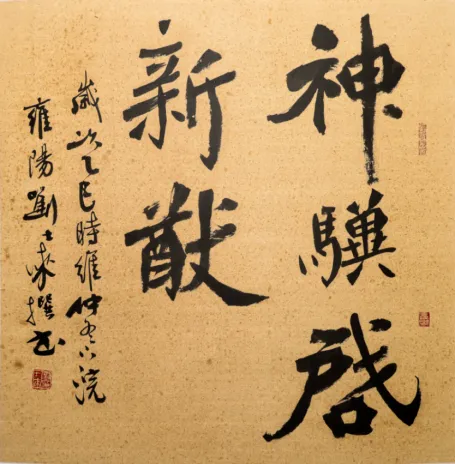 神驥啓
新猷
歲次乙巳時維仲冬下浣
雍陽劉士撰書